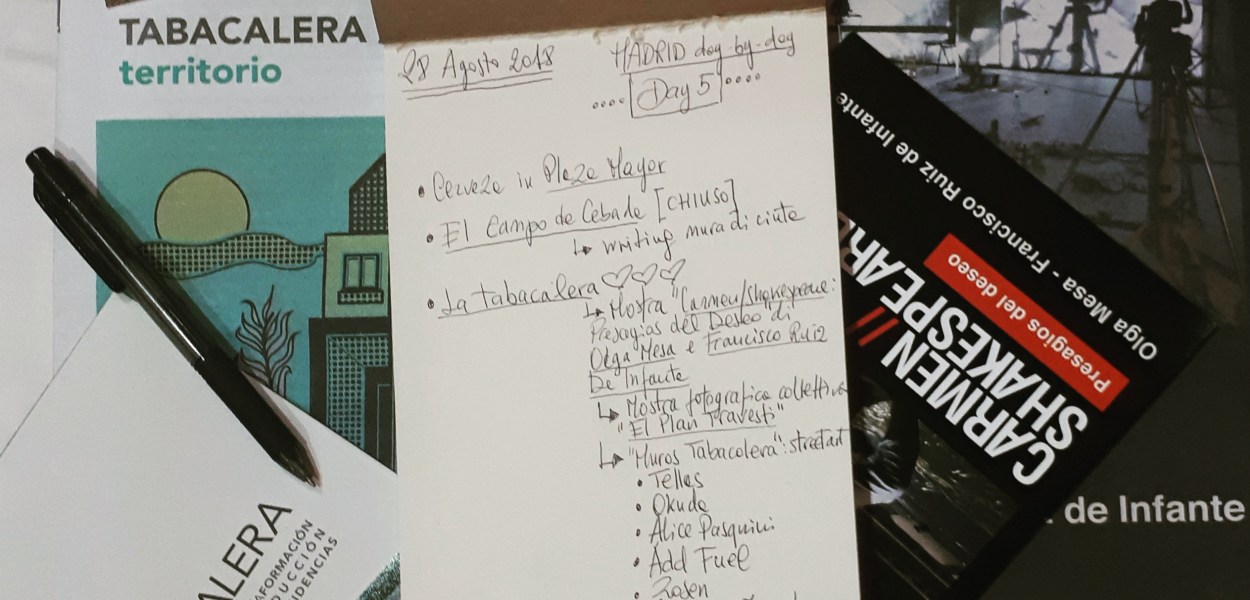 TABACALERA
territorio
28 Agosto 2018
MADRID day-by-day
Day 5
• Cerveza in Plaza Mayor
• El Campo de Cebada [CHIUSO]
↳ writing mura di cinta
• La tabacalera ♡♡♡
↳ Mostra "Carmen/Shakespeare:
Presagios del Deseo" di
Olga Mesa e Francisco Ruiz
De Infante
↳ Mostra fotografica collettiva
"El Plan Travesti"
↳ "Muros Tabacalera": streetart
• Tellas
• Okuda
• Alice Pasquini
• Add Fuel
• Rosen
ALERA
AFORMACIÓN
DUCCIÓN
IDENCIAS
CARMEN //
SHAKESPEARE
Presagios del deseo
Olga Mesa - Francisco Ruiz de Infante
de Infante